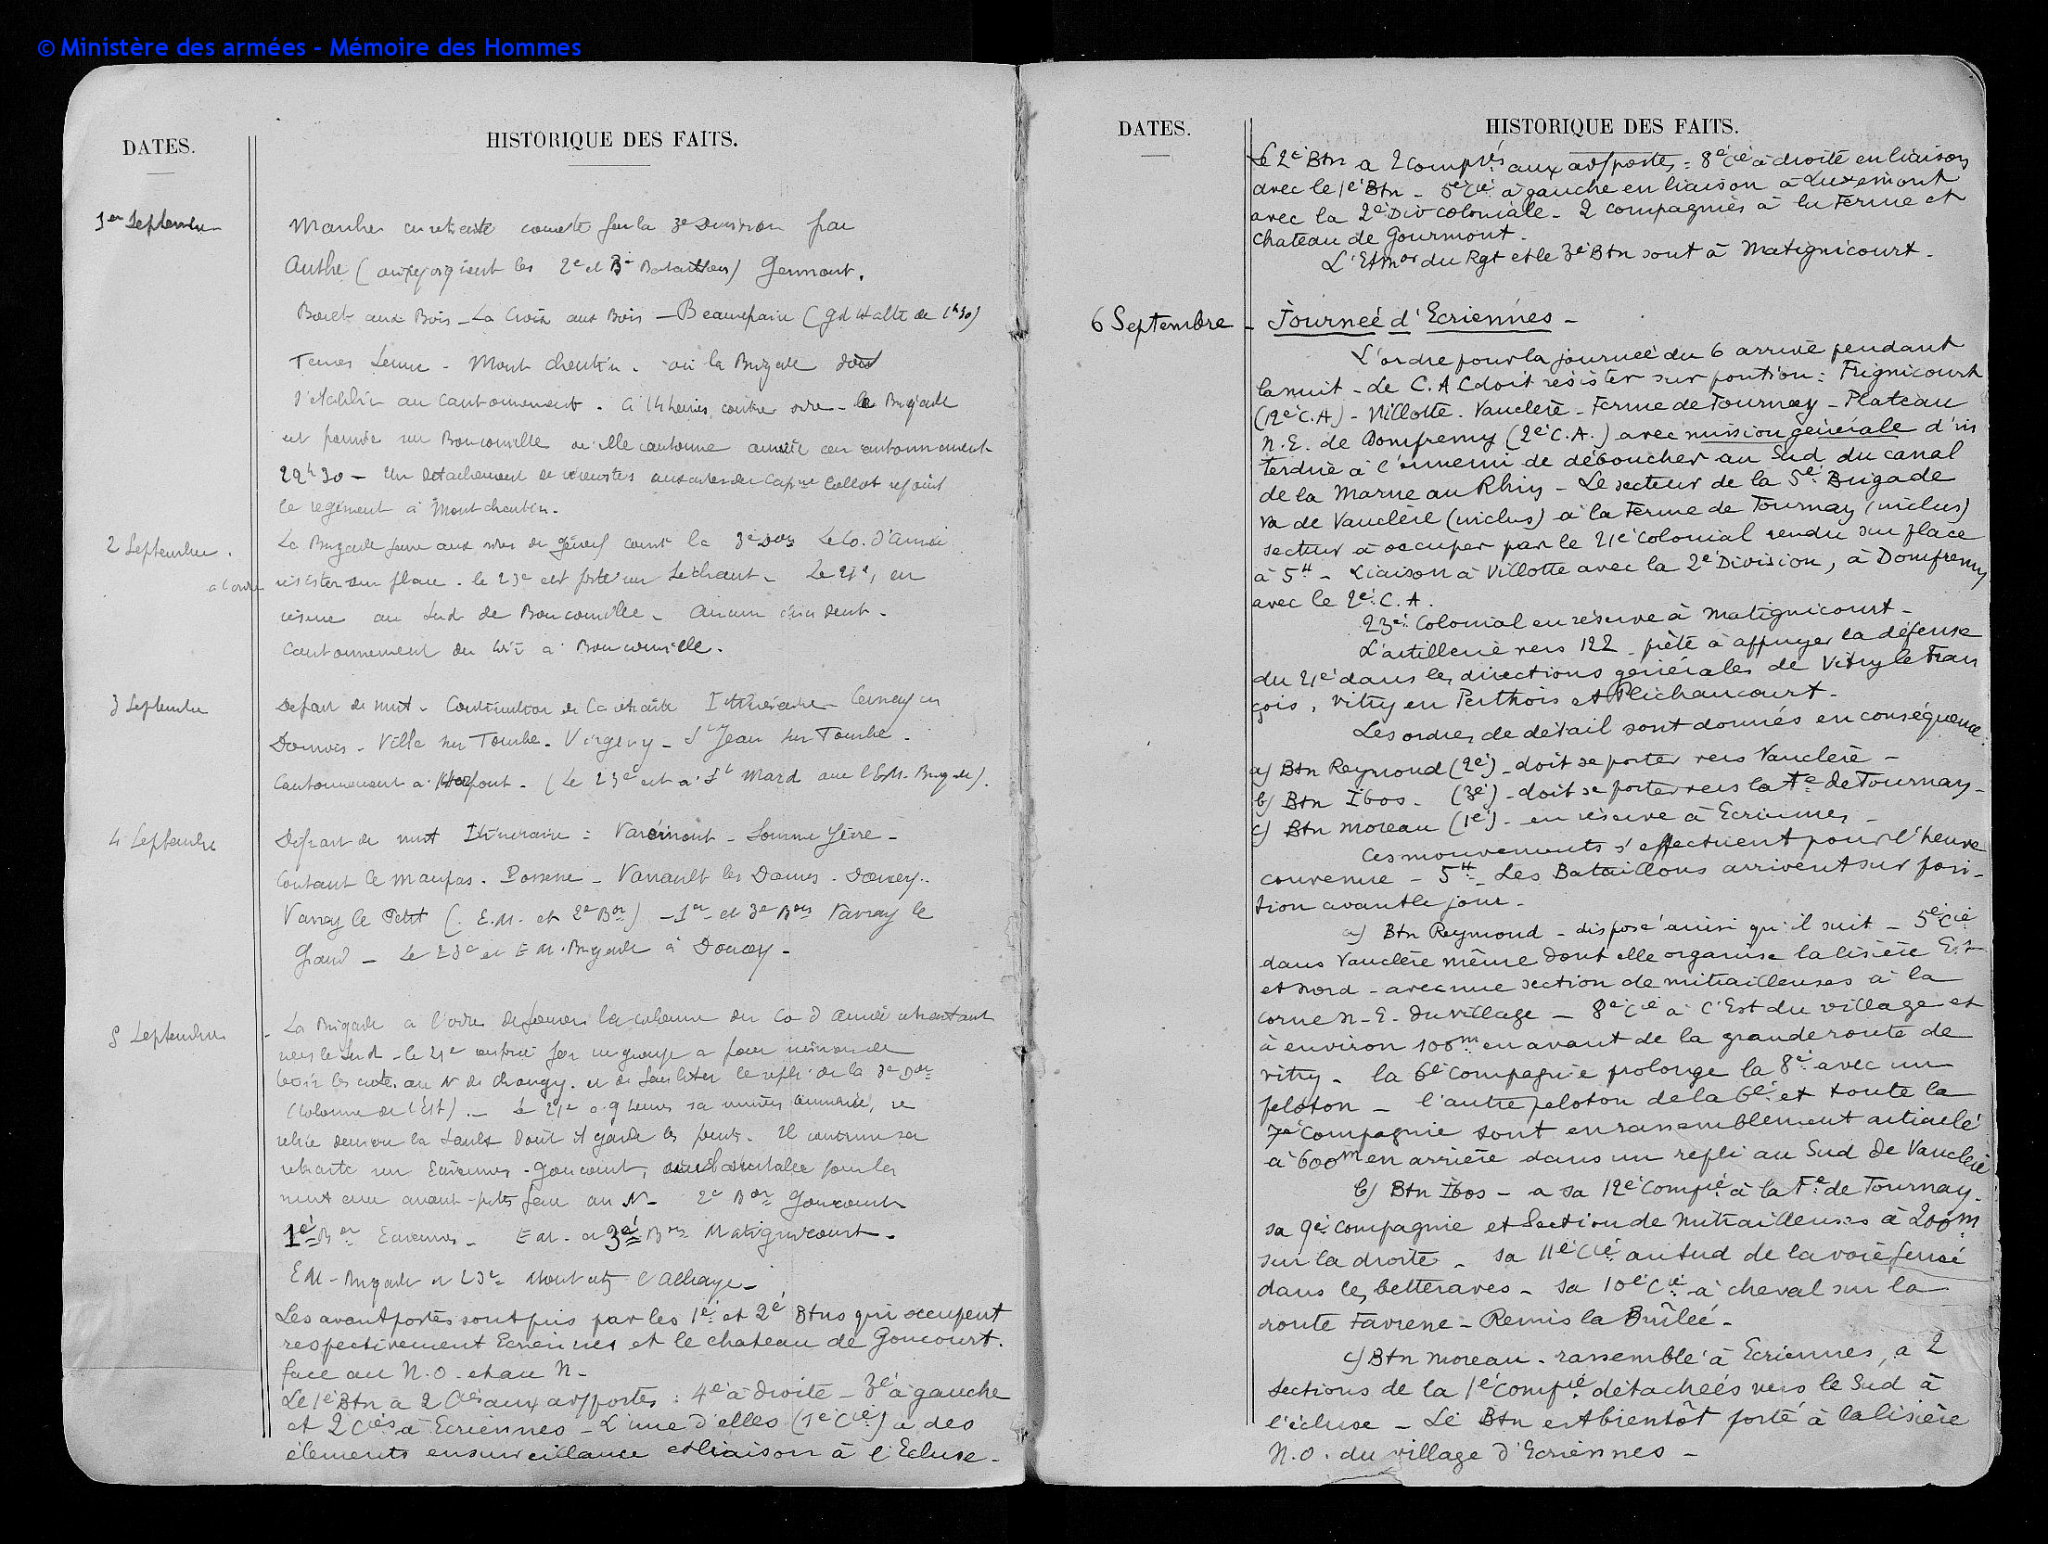 © Ministère des armées - Mémoire des Hommes
DATES.
HISTORIQUE DES FAITS.
1er Septembre
Marche en retraite couverte par la 3e Division par
Authe ( les 2e et 3e Bataillons) Germont.
Boult aux Bois - La Croix aux Bois - Beaurepaire (gd Halte de 1h30)
Termes Senuc - Mont cheutin. où la Brigade doit
s'établir au cantonnement. à 14 heures, contre ordre - la Brigade
est poussée sur Bouconville où elle cantonne arrivée au cantonnement
22h30 - Un détachement de réservistes aux ordres du Capne Collot rejoint
le régiment à Montcheutin.
2 Septembre.
La Brigade aux ordres du Géneral comt la 3e Don Le Co. d'Armée
a l'ordre
résister sur place. le 23e est porté sur Séchault - Le 21e, en
réserve au Sud de Bouconville - Aucun incident -
Cantonnement du soir à Bouconville.
3 Septembre
Départ de nuit - Continuation de la retraite Itinéraire - Cernay en
Dormois - Ville sur Tourbe - Virginy - St Jean sur Tourbe -
Cantonnement à Herpont - (Le 23e est à St Mard avec l'E.M. Brigade).
4 Septembre
Départ de nuit Itinéraire : Varimont - Somme Yèvre -
Contaut le Maupas. Possesse - Vanault les Dames - Doucey -
Vavray le Petit ( E.M. et 2e Bon) - 1er et 3e Bons Vavray le
Grand - Le 23e et E.M. Brigade à Doucey -
5 Septembre
- La Brigade a l'ordre de la colonne du Co d'Armée retraitant
vers le Sud - le 21e renforcé par un groupe a pour mission de
tenir les crêtes au N de Changy. et de faciliter le repli de la 3e Don
(Colonne de l'Est). - Le 21e à 9 heures sa mission terminée, se
replie derrière la Saulx dont il garde les ponts. Il continue sa
retraite sur Ecriennes - Goncourt, où il s'installe pour la
nuit avec avant-postes face au N - 2e Bon Goncourt
1er Bon Ecriennes - E.M. et 3e Bon Matignicourt -
E.M. - Brigade et 23e l'Abbaye -
Les avantpostes sont pris par les 1e et 2e Btns qui occupent
respectivement Ecriennes et le chateau de Goncourt.
face au N.O. et au N -
Le 1e Btn a 2 Cies aux av/postes : 4e à droite - 3e à gauche
et 2 Cies à Ecriennes - L'une d'elles (1e Cie) a des
élements en surveillance et liaison à l'Ecluse -
DATES.
HISTORIQUE DES FAITS.
Le 2e Btn a 2 Compies aux av/postes : 8e Cie à droite en liaison
avec le 1e Btn - 5e Cie à gauche en liaison à Luxemont
avec la 2e Div coloniale - 2 compagnies à la Ferme et
Chateau de Gourmont.
L'EtMor du Rgt et le 3e Btn sont à Matignicourt.
6 Septembre -
Journée d'Ecriennes -
L'ordre pour la journée du 6 arrive pendant
la nuit - le C.A C doit résister sur position : Frignicourt
(12e C.A) - Villotte - Vauclère - Ferme de Tournay - Plateau
N.E. de Domfremy (2e C.A.) avec mission générale d'in
terdire à l'ennemi de déboucher au Sud du canal
de la Marne au Rhin - Le secteur de la 5e Brigade
va de Vauclère (inclus) à la Ferme de Tournay (inclus)
secteur à occuper par le 21e Colonial rendu sur place
à 5H - Liaison à Villotte avec la 2e Division, à Domfremy
avec le 2e C.A.
23e Colonial en réserve à Matignicourt -
L'artillerie vers 122 - prête à appuyer la défense
du 21e dans les directions générales de Vitry le Fran
çois, Vitry en Perthois et Plichancourt -
Les ordres de détail sont donnés en conséquence :
a) Btn Reymond (2e) - doit se porter vers Vauclère -
b) Btn Ibos - (3e) - doit se porter vers la Fe de Tournay -
c) Btn Moreau (1e) - en réserve à Ecriennes -
Ces mouvements s'effectuent pour l'heure
convenue - 5H - Les Bataillons arrivent sur posi-
tion avant le jour -
a) Btn Reymond - disposé ainsi qu'il suit - 5e Cie
dans Vauclère même dont elle organise la lisière Est
et Nord - avec une section de mitrailleuses à la
corne N-E. du village - 8e Cie à l'Est du village et
à environ 100m en avant de la grande route de
Vitry - la 6e Compagnie prolonge la 8e avec un
peloton - l'autre peloton de la 6e et toute la
7e Compagnie sont en rassemblement articulé
à 600m en arrière dans un repli au Sud de Vauclère
b) Btn Ibos - a sa 12e Compie à la Fe de Tournay -
sa 9e Compagnie et Section de Mitrailleuses à 200m
sur la droite - sa 11e Cie au Sud de la voie ferrée
dans les betteraves - sa 10e Cie à cheval sur la
route Favresse - Remis la Brûlée -
c) Btn Moreau - rassemblé à Ecriennes, a 2
sections de la 1e Compie détachées vers le Sud à
l'écluse - Le Btn est bientôt porté à la lisière
N.O. du village d'Ecriennes -